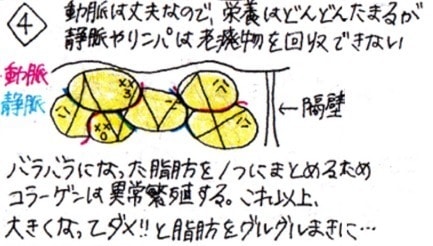 ④ 動脈は丈夫なので、栄養はどんどんたまるが
静脈やリンパは老廃物を回収できない
動脈
静脈
←隔壁
バラバラになった脂肪を1つにまとめるため
コラーゲンは異常繁殖する。これ以上、
大きくなってダメ!!と脂肪をグルグルまきに…